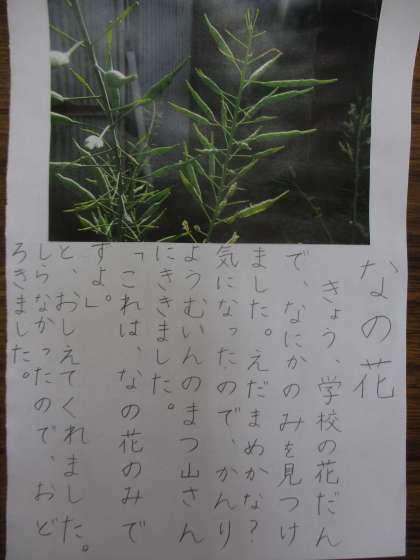 なの花
きょう、学校の花だん
で、なにかのみを見つけ
ました。えだまめかな？
気になったので、かんり
ようむいんのまつ山さん
にききました。
「これは、なの花のみで
すよ。」
と、おしえてくれました。
しらなかったので、おど
ろきました。